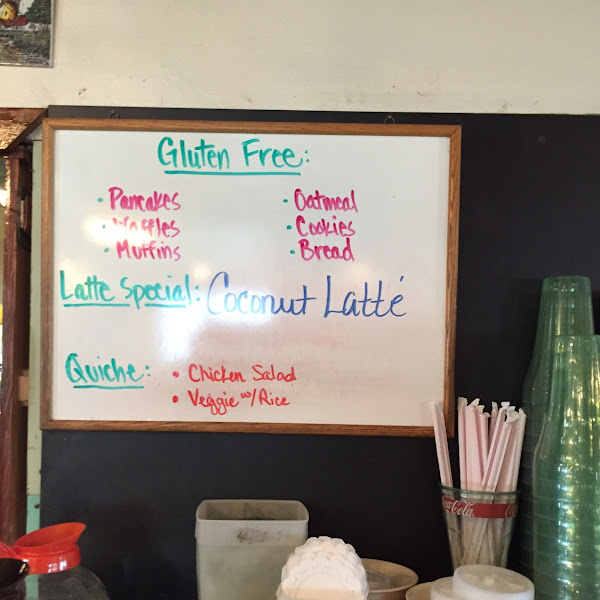 Gluten Free:
· Pancakes
· Oatmeal
· Waffles
· Cookies
· Muffins
· Bread
Latte Special: Coconut Latté
Quiche: • Chicken Salad
• Veggie w/ Rice
Coca-Cola